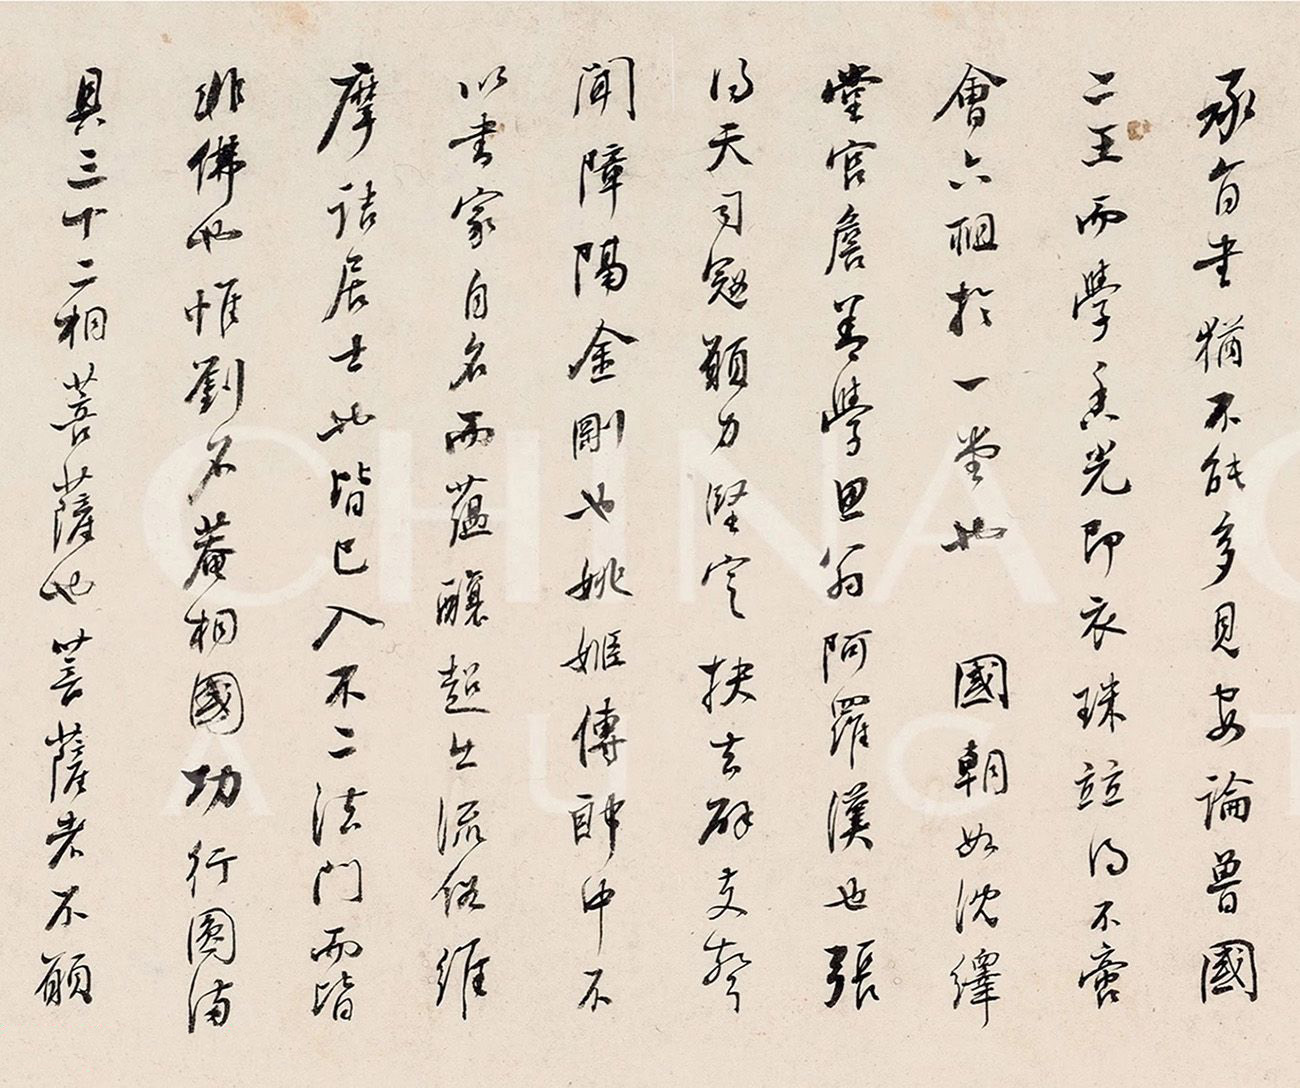 承旨書猶不能多見安論魯國
二王而學香光即衣珠竝得不啻
會六祖於一堂也 國朝如沈繹
堂官詹善學思翁阿羅漢也張
得天司寇願力堅定抉去辟支聲
聞障隔金剛也姚姬傳郎中不
以書家自名而蘊釀超出流俗維
摩詰居士也皆已入不二法門而皆
非佛也惟劉石菴相國功行圓滿
具三十二相菩薩也菩薩者不願
CHINA
AUCT